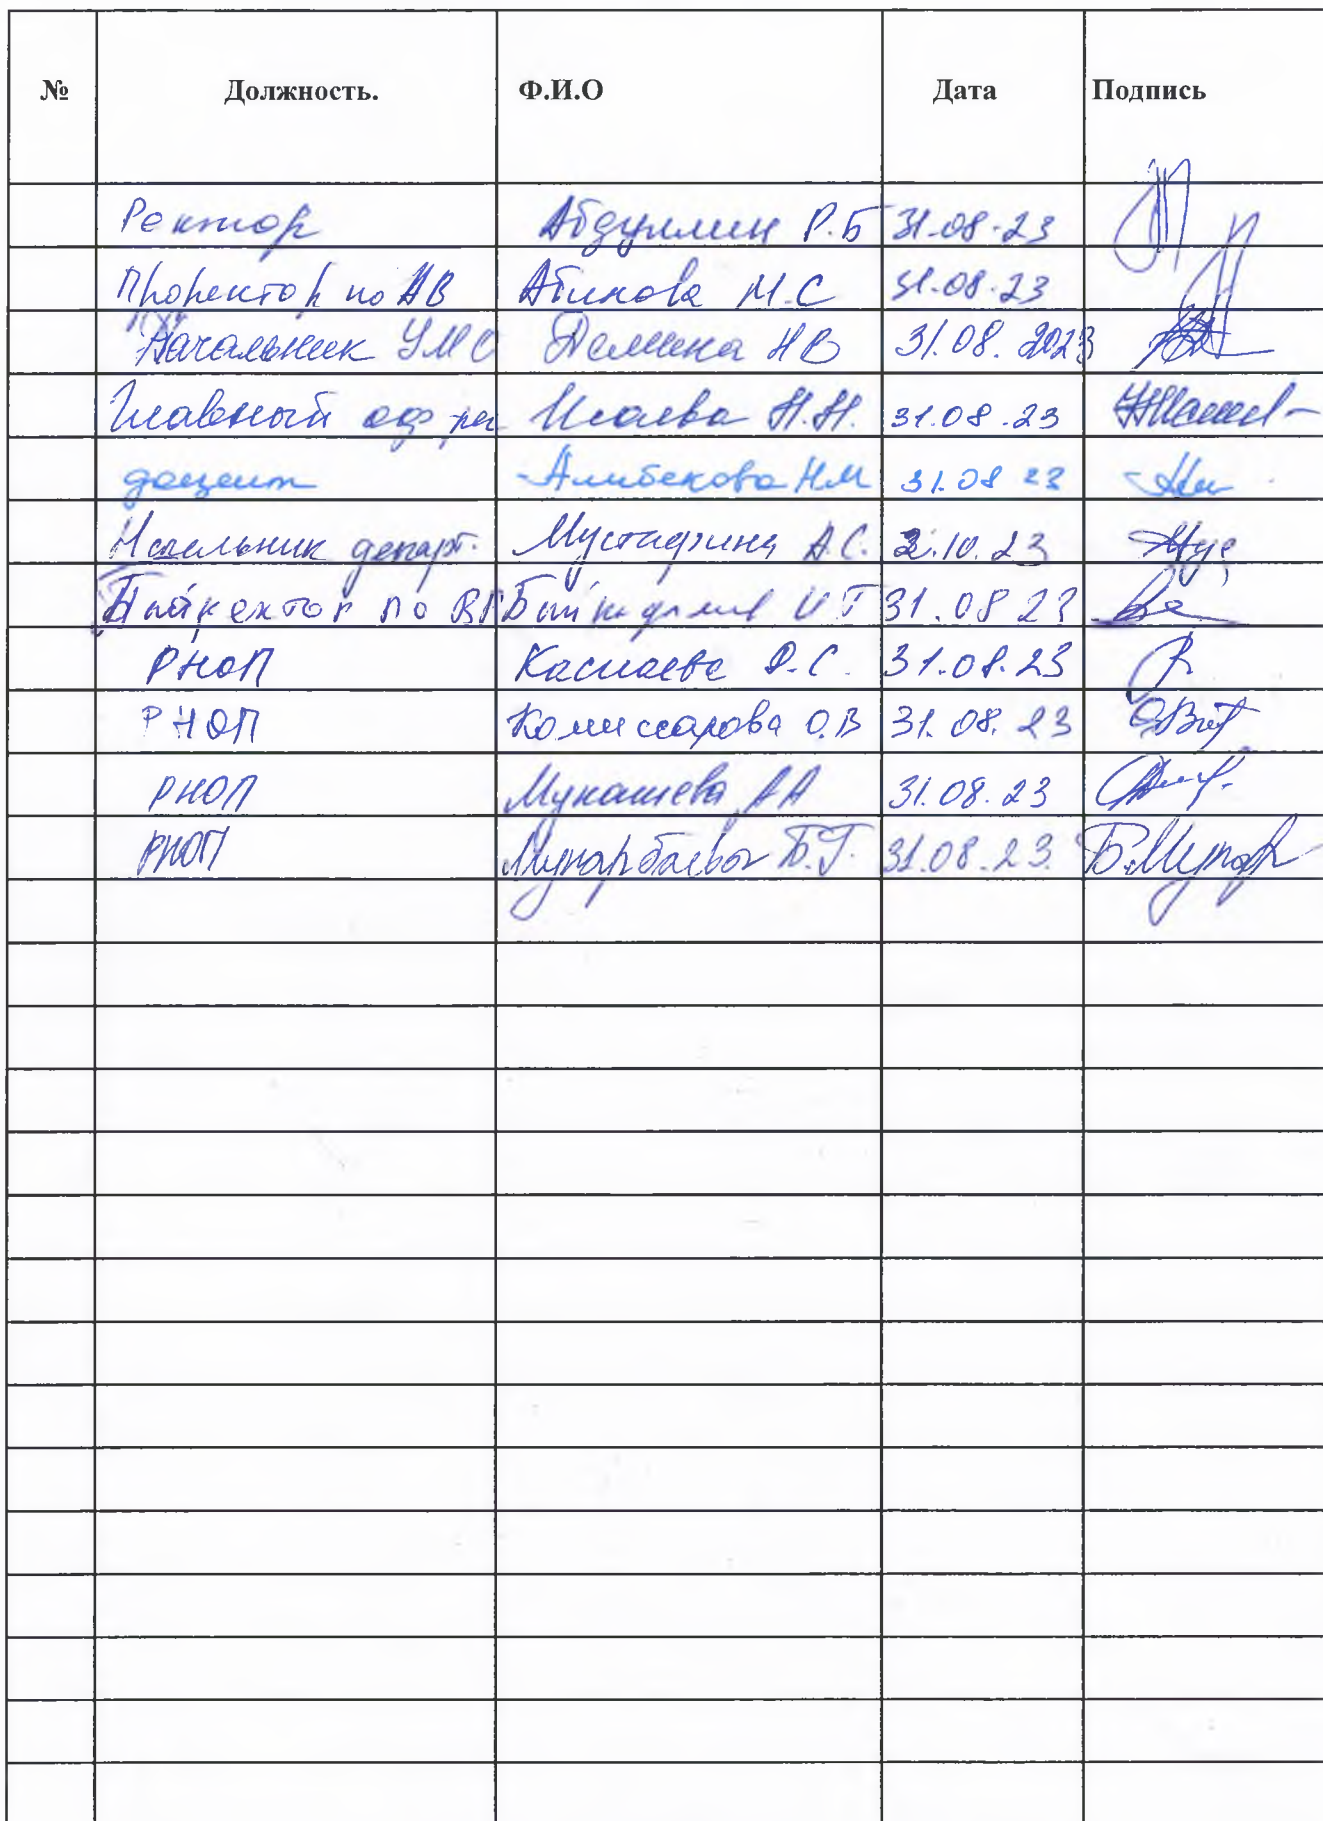 № Должность. Ф.И.О Дата Подпись
Ректор Абдуллин Р.Б 31.08.23
Проректор по АВ Абикова М.С 31.08.23
Начальник УМС Демина НВ 31.08.2023
Главный Исаева Н.Н. 31.08.23
доцент Алибекова Н.М 31.08 23
Начальник департ. Мустафина А.С. 2.10.23
по ВР И Т 31.08 23
РНОП Касиаева С. 31.08.23
РНОП Комиссарова О.В 31.08.23
РНОП Мукашева АА 31.08.23
РНОП Мунарбаева Б.Г. 31.08.23. Б.Мунар